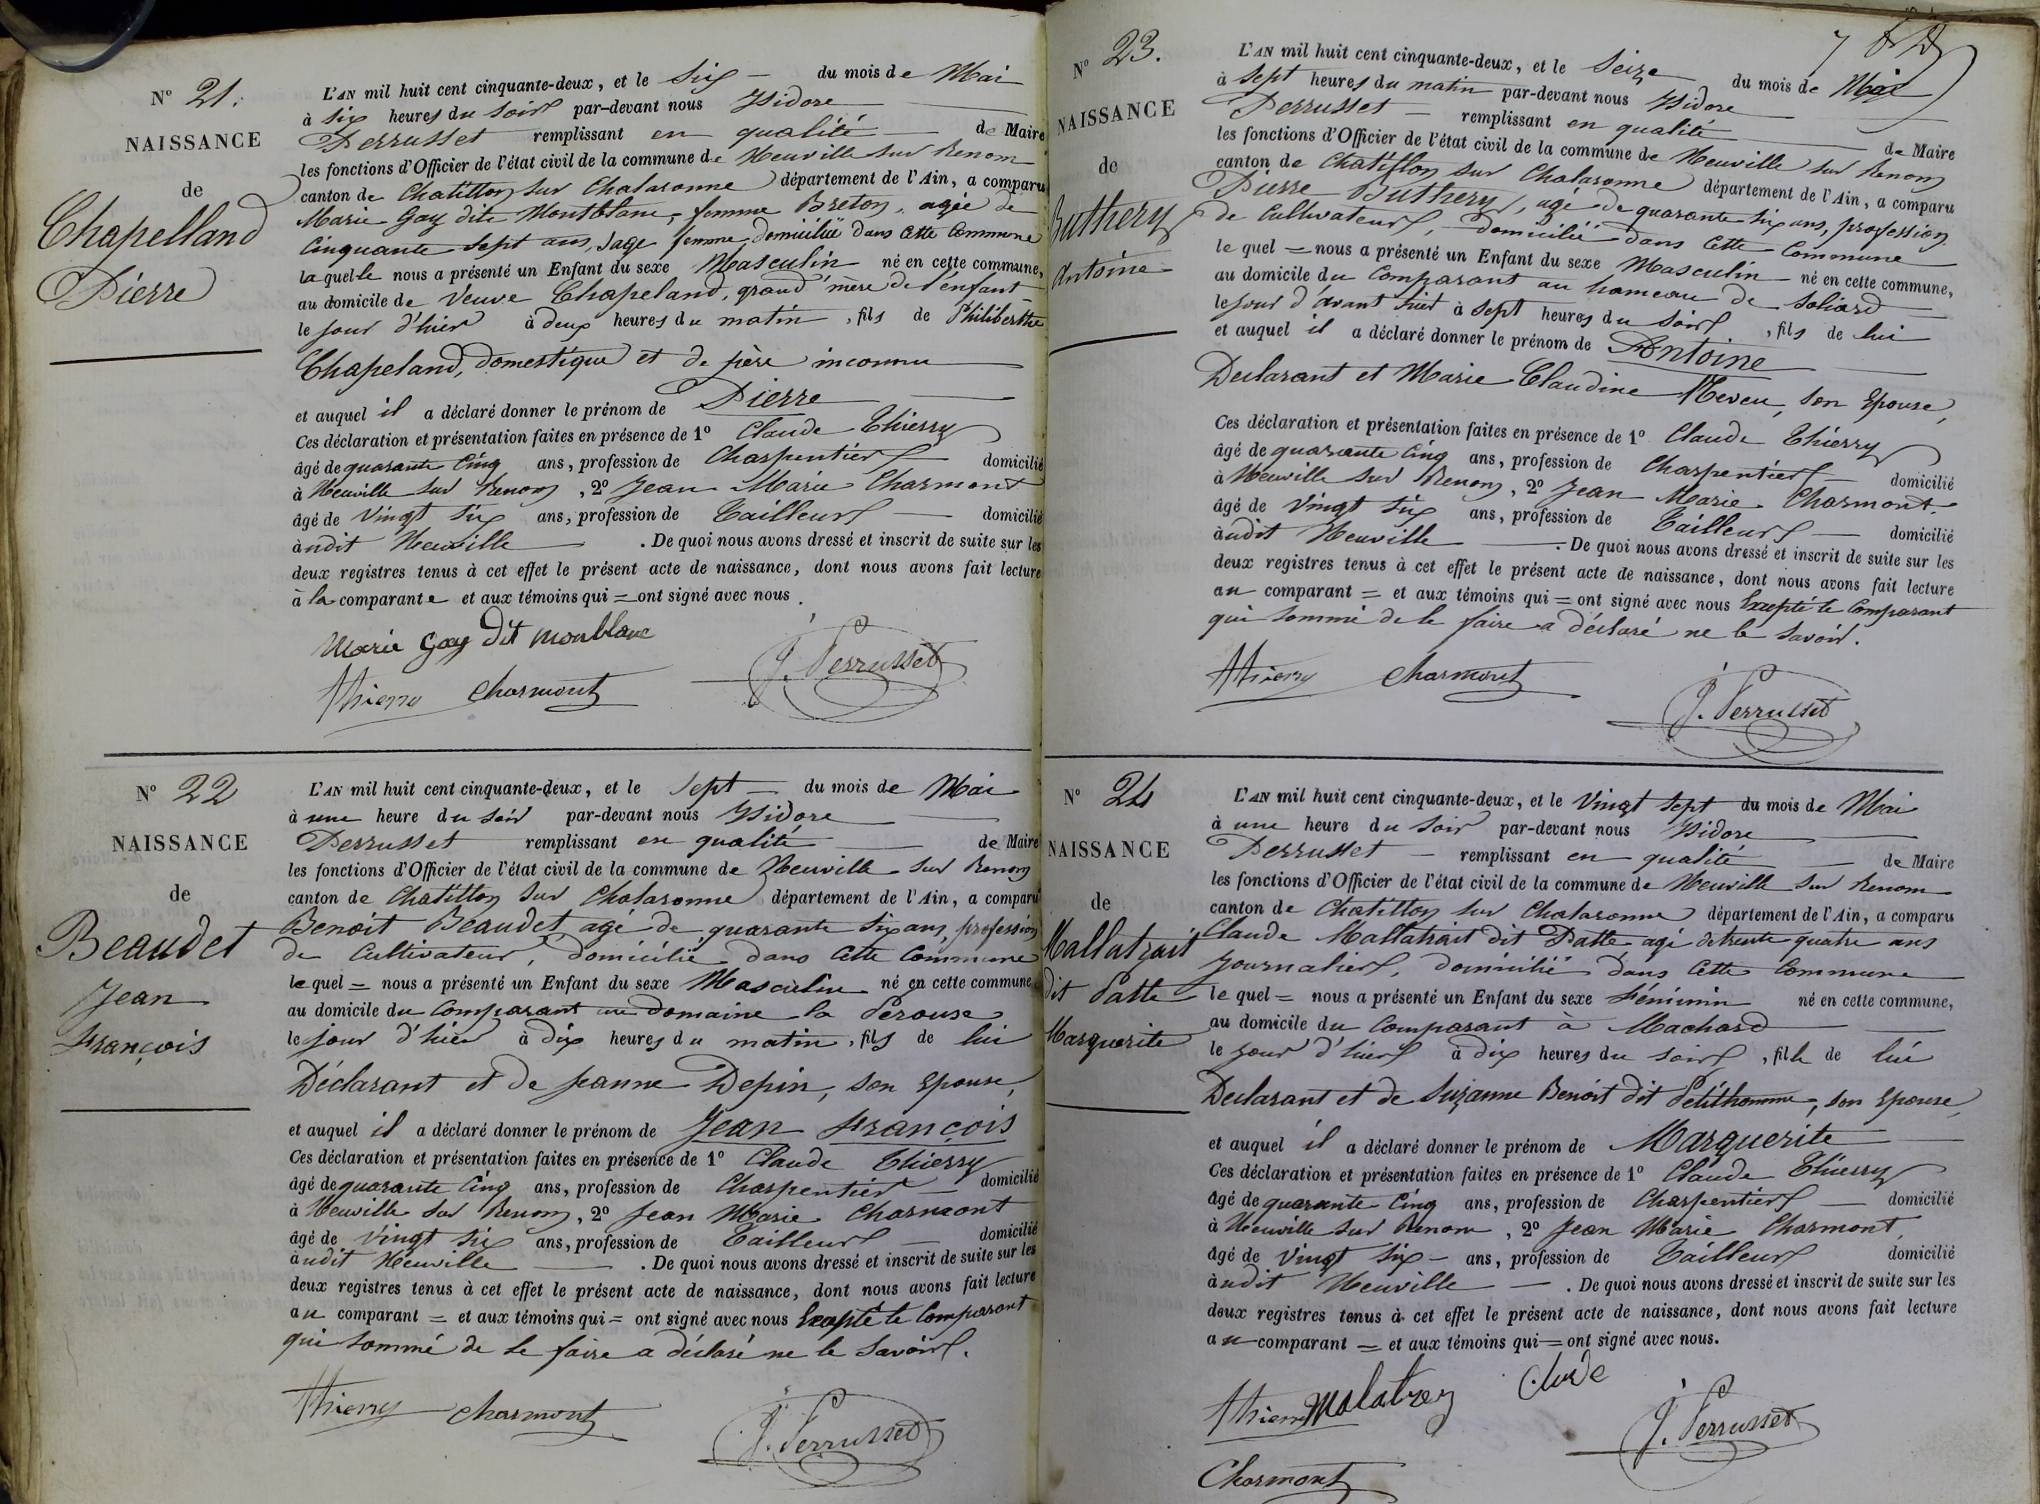 N° 21.
NAISSANCE
de
Chapelland
Pierre
L'AN mil huit cent cinquante-deux, et le Six du mois de Mai
à six heures du soir par-devant nous Isidore
Perrusset remplissant en qualité de Maire
les fonctions d'Officier de l'état civil de la commune de Neuville sur Renom
canton de Chatillon sur Chalaronne département de l'Ain, a comparu
Marie Gay dite Montblanc, femme Breton, agée de
Cinquante sept ans, Sage femme, domiciliée dans cette Commune
laquelle nous a présenté un Enfant du sexe Masculin né en cette commune,
au domicile de Veuve Chapeland, grand'mère de l'enfant
le jour d'hier à deux heures du matin, fils de Philiberthe
Chapeland, domestique et de père inconnu
et auquel il a déclaré donner le prénom de Pierre
Ces déclaration et présentation faites en présence de 1° Claude Thierry
âgé de quarante Cinq ans, profession de Charpentier domicilié
à Neuville sur Renom, 2° Jean Marie Charmont
âgé de Vingt Six ans, profession de Tailleur domicilié
àudit Neuville . De quoi nous avons dressé et inscrit de suite sur les
deux registres tenus à cet effet le présent acte de naissance, dont nous avons fait lecture
à la comparante et aux témoins qui = ont signé avec nous.
Marie Gay dit monblanc
Thierry Charmont J. Perrusset
N° 22
NAISSANCE
de
Beaudet
Jean
François
L'AN mil huit cent cinquante-deux, et le Sept du mois de Mai
à une heure du soir par-devant nous Isidore
Perrusset remplissant en qualité de Maire
les fonctions d'Officier de l'état civil de la commune de Neuville sur Renom
canton de Chatillon sur Chalaronne département de l'Ain, a comparu
Benoit Beaudet agé de quarante six ans, profession
de Cultivateur, domicilié dans cette Commune
lequel = nous a présenté un Enfant du sexe Masculin né en cette commune,
au domicile du Comparant au domaine la Perouse
le jour d'hier à dix heures du matin, fils de lui
Déclarant et de Jeanne Depin, son Epouse,
et auquel il a déclaré donner le prénom de Jean François
Ces déclaration et présentation faites en présence de 1° Claude Thierry
âgé de quarante Cinq ans, profession de Charpentier domicilié
à Neuville sur Renom, 2° Jean Marie Charmont
âgé de Vingt six ans, profession de Tailleur domicilié
àudit Neuville . De quoi nous avons dressé et inscrit de suite sur les
deux registres tenus à cet effet le présent acte de naissance, dont nous avons fait lecture
au comparant = et aux témoins qui = ont signé avec nous Excepté le Comparant
qui sommé de le faire a déclaré ne le savoir.
Thierry Charmont J. Perrusset
N° 23.
NAISSANCE
de
Buthery
Antoine
7
L'AN mil huit cent cinquante-deux, et le Seize du mois de Mai
à Sept heures du matin par-devant nous Isidore
Perrusset remplissant en qualité de Maire
les fonctions d'Officier de l'état civil de la commune de Neuville sur Renom
canton de Chatillon sur Chalaronne département de l'Ain, a comparu
Pierre Buthery, agé de quarante six ans, profession
de Cultivateur, domicilié dans cette Commune
lequel = nous a présenté un Enfant du sexe Masculin né en cette commune,
au domicile du Comparant au hameau de Soliard
le jour d'avant hier à sept heures du soir, fils de lui
et auquel il a déclaré donner le prénom de Antoine
Déclarant et Marie Claudine Neveu, son Epouse,
Ces déclaration et présentation faites en présence de 1° Claude Thierry
âgé de quarante Cinq ans, profession de Charpentier domicilié
à Neuville sur Renom, 2° Jean Marie Charmont
âgé de Vingt six ans, profession de Tailleur domicilié
àudit Neuville . De quoi nous avons dressé et inscrit de suite sur les
deux registres tenus à cet effet le présent acte de naissance, dont nous avons fait lecture
au comparant = et aux témoins qui = ont signé avec nous Excepté le Comparant
qui sommé de le faire a déclaré ne le savoir.
Thierry Charmont J. Perrusset
N° 24
NAISSANCE
de
Mallatrait
dit Patte
Marguerite
L'AN mil huit cent cinquante-deux, et le Vingt sept du mois de Mai
à une heure du soir par-devant nous Isidore
Perrusset remplissant en qualité de Maire
les fonctions d'Officier de l'état civil de la commune de Neuville sur Renom
canton de Chatillon sur Chalaronne département de l'Ain, a comparu
Claude Mallatrait dit Patte agé de trente quatre ans
Journalier, domicilié dans cette Commune
lequel = nous a présenté un Enfant du sexe Féminin né en cette commune,
au domicile du Comparant à Machard
le jour d'hier à dix heures du soir, fille de lui
Déclarant et de Suzanne Benoit dit Petithomme, son Epouse,
et auquel il a déclaré donner le prénom de Marguerite
Ces déclaration et présentation faites en présence de 1° Claude Thierry
âgé de quarante Cinq ans, profession de Charpentier domicilié
à Neuville sur Renom, 2° Jean Marie Charmont,
âgé de Vingt Six ans, profession de Tailleur domicilié
àudit Neuville . De quoi nous avons dressé et inscrit de suite sur les
deux registres tenus à cet effet le présent acte de naissance, dont nous avons fait lecture
au comparant = et aux témoins qui = ont signé avec nous.
Thierry Malatrey Clude J. Perrusset
Charmont